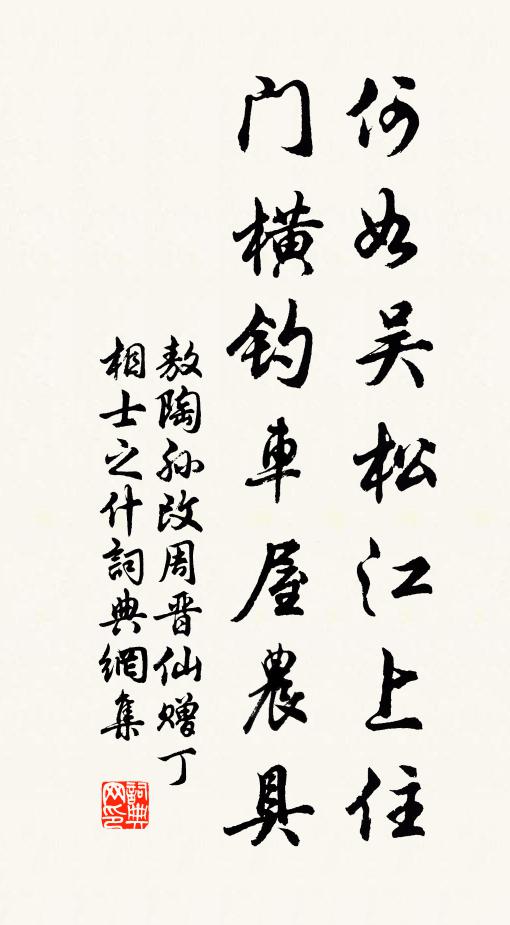 何如吴松江上住
门横钓車屋農具
敖陶孙改周晋仙赠丁
相士之什詞典網集
詞典网印